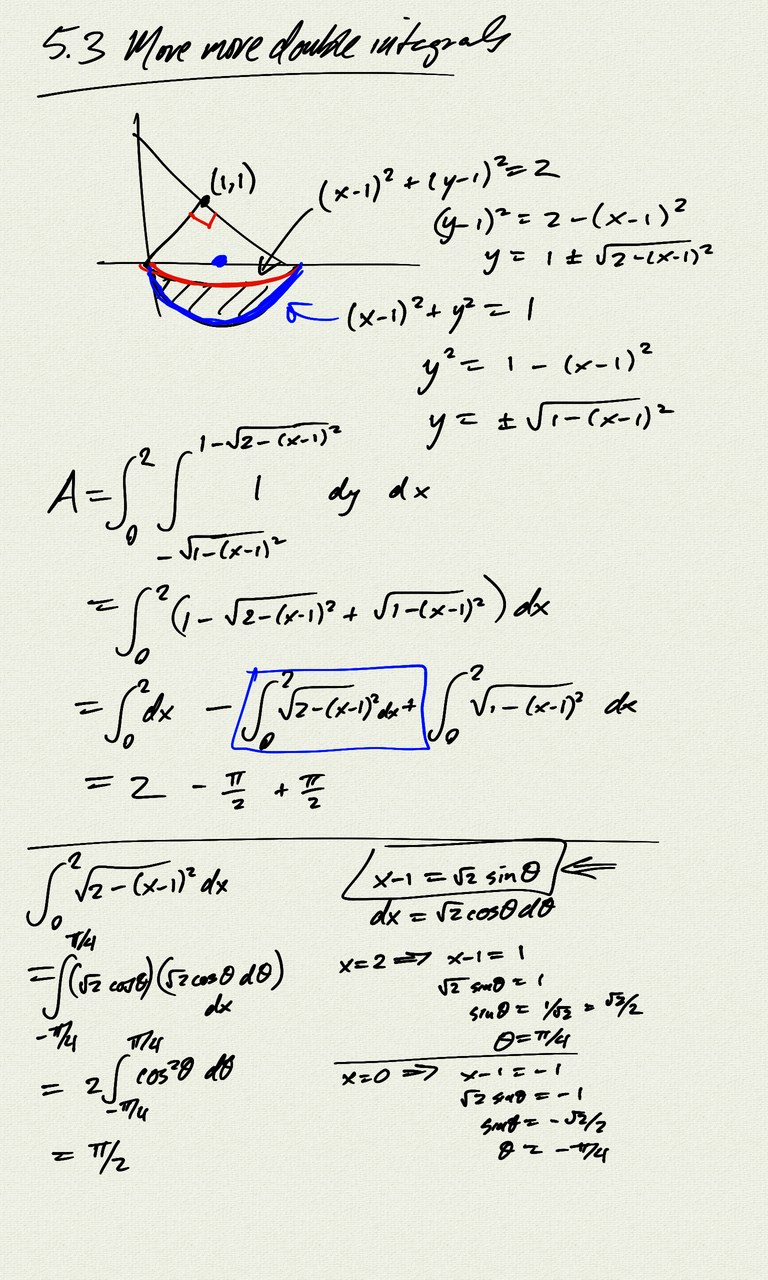 5.3 More more double integrals
(1,1)
(x-1)² + (y-1)² = 2
(y-1)² = 2 - (x-1)²
y = 1 ± √(2-(x-1)²)
(x-1)² + y² = 1
y² = 1 - (x-1)²
y = ± √(1-(x-1)²)
A = ∫₀² ∫_{-√(1-(x-1)²)}^{1-√(2-(x-1)²)} 1 dy dx
= ∫₀² (1 - √(2-(x-1)²) + √(1-(x-1)²)) dx
= ∫₀² dx - ∫₀² √(2-(x-1)²) dx + ∫₀² √(1-(x-1)²) dx
= 2 - π/2 + π/2
∫₀² √(2-(x-1)²) dx
= ∫_{-π/4}^{π/4} (√2 cosθ)(√2 cosθ dθ)
dx
= 2 ∫_{-π/4}^{π/4} cos²θ dθ
= π/2
x-1 = √2 sinθ
dx = √2 cosθ dθ
x=2 ⇒ x-1 = 1
√2 sinθ = 1
sinθ = 1/√2 = √2/2
θ = π/4
x=0 ⇒ x-1 = -1
√2 sinθ = -1
sinθ = -√2/2
θ = -π/4